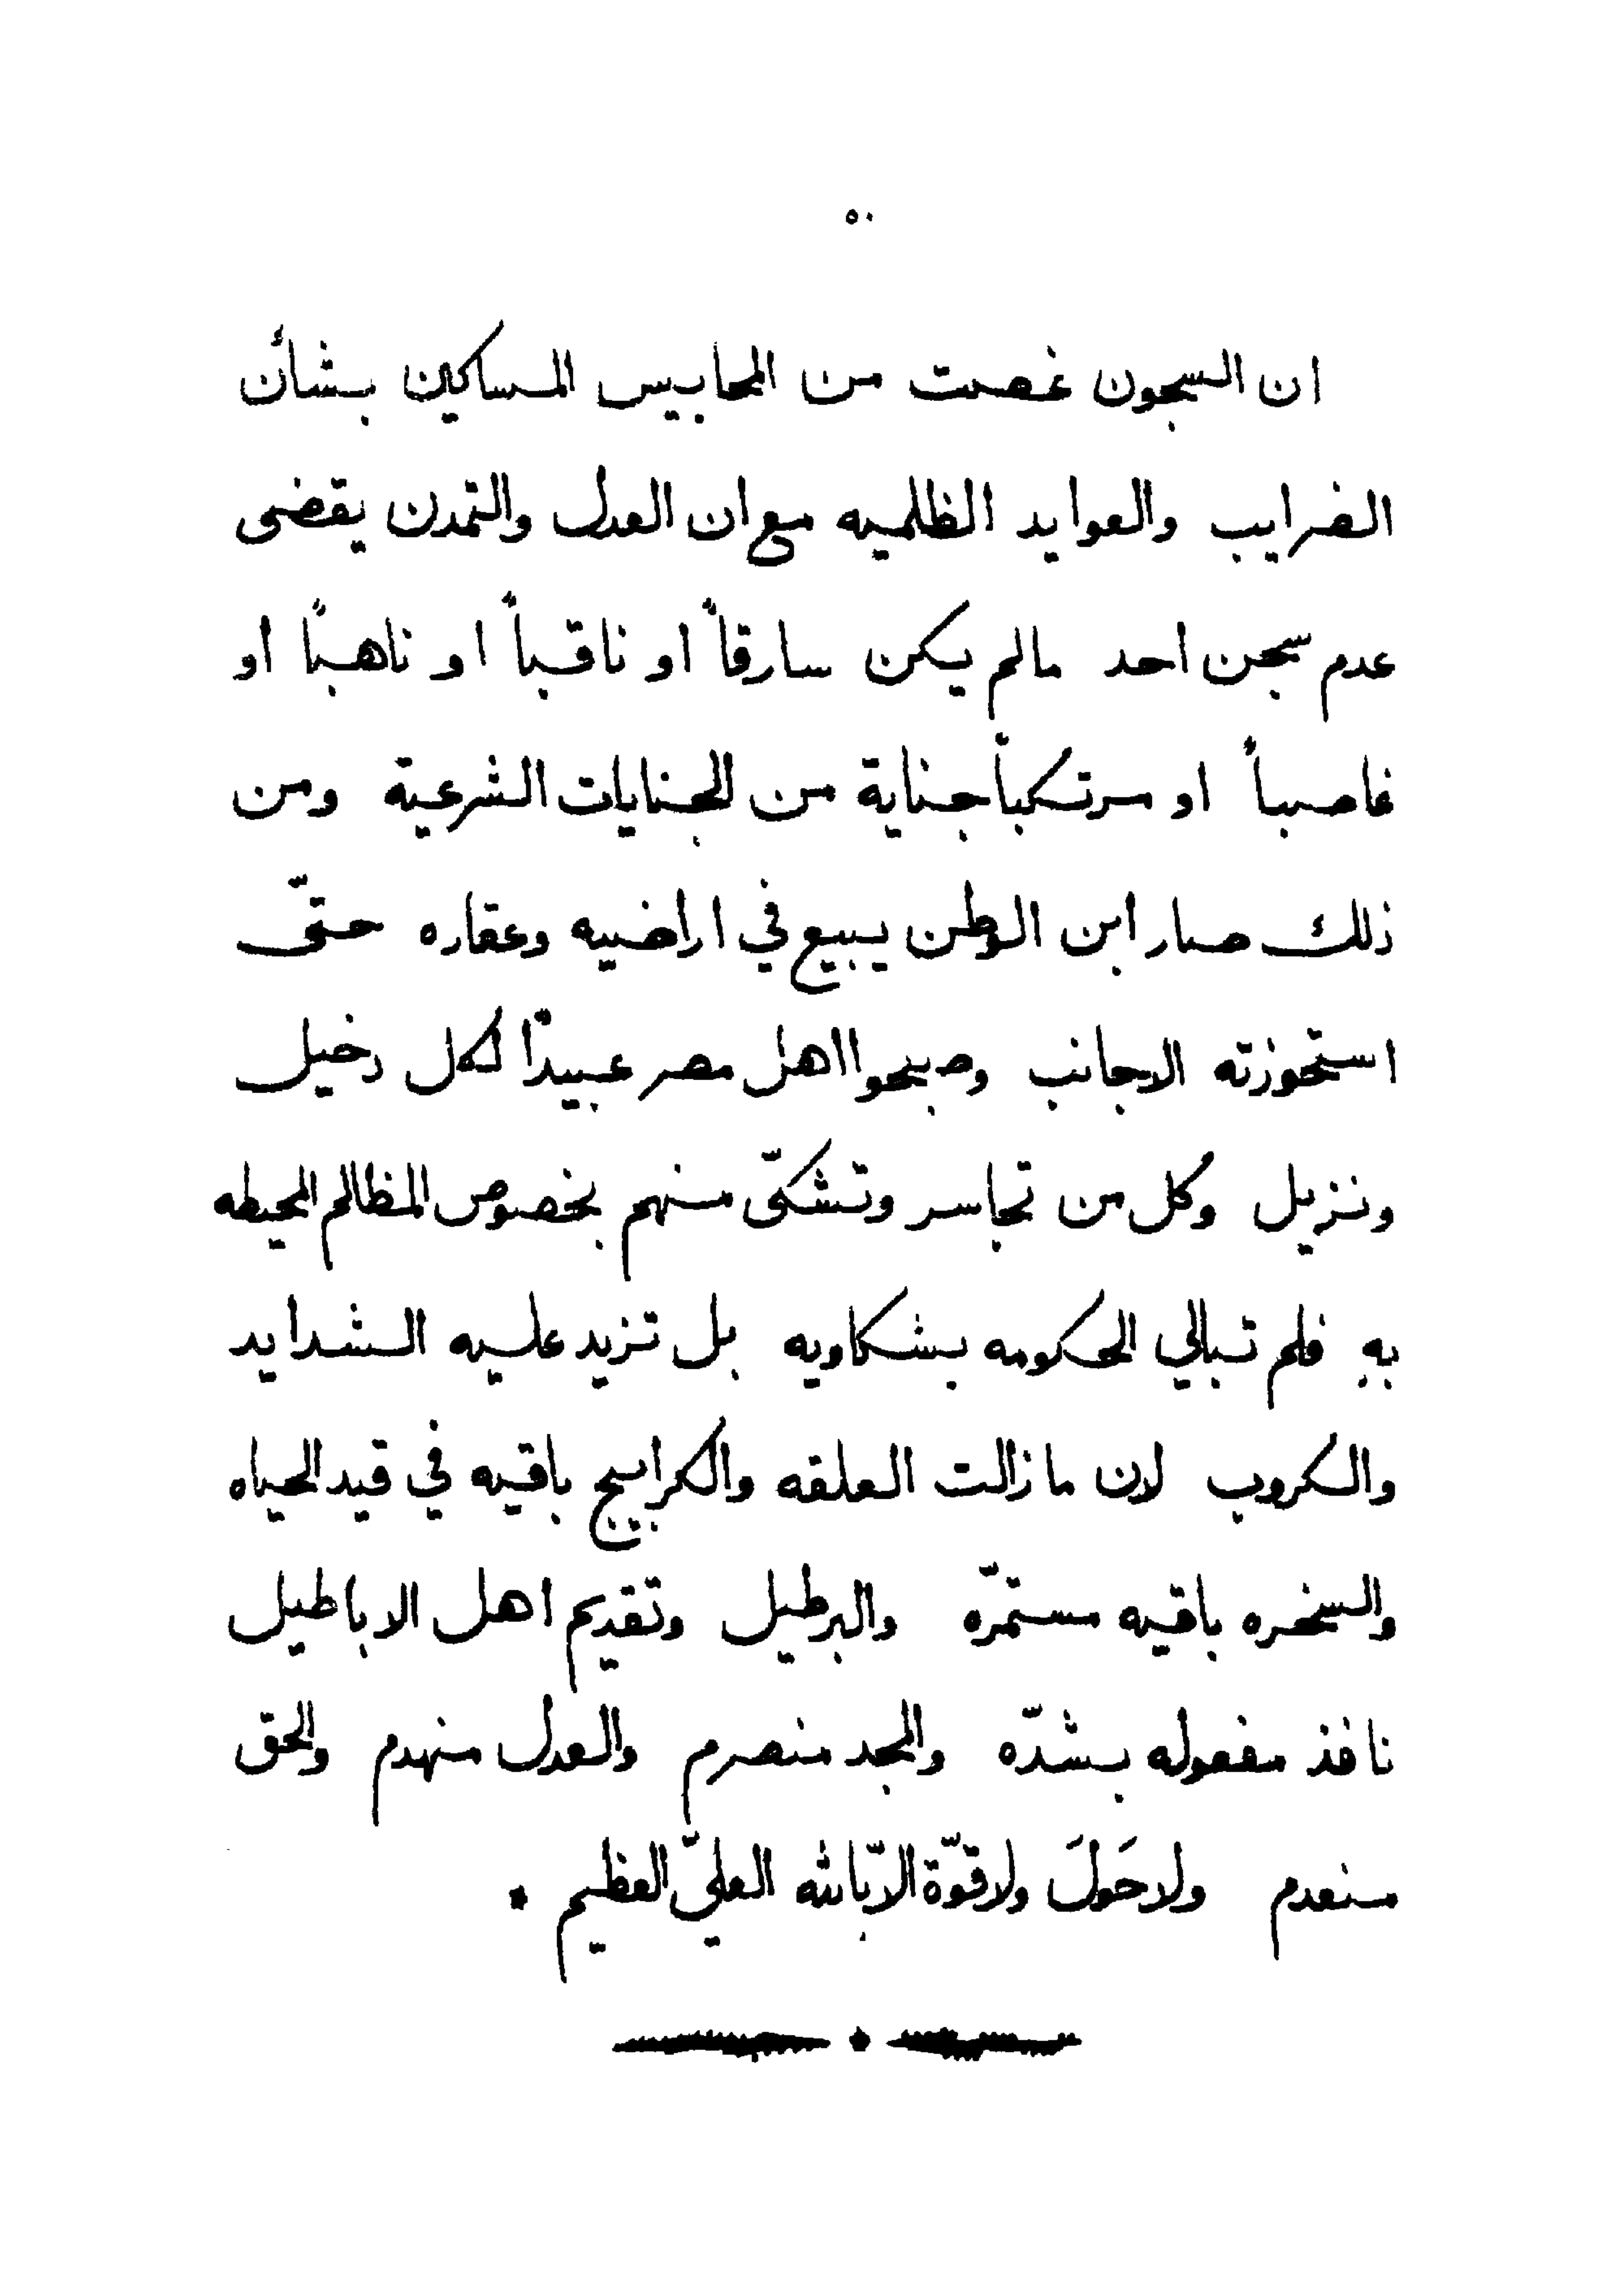 ٥٠
ان السجون غصت من المحابيس المساكين بشأن
الضرايب والعوايد الظلميه مع ان العدل والتمدن يقضى
عدم سجن احد مالم يكن سارقاً او ناقباً او ناهباً او
غاصباً او مرتكباً جناية من الجنايات الشرعية ومن
ذلك صار ابن الوطن يبيع في اراضيه وعقاره حتّى
استحوزته الاجانب وصبحوا اهل مصر عبيداً لكل دخيل
ونزيل وكل من تجاسر وتشكّى منهم بخصوص المظالم المحيطه
بهِ فلم تبالي الحكومه بشكاويه بل تزيد عليه الشدايد
والكروب لان ما زالت العلقه والكرابيج باقيه في قيد الحياه
والسخره باقيه مستمرّه والبرطيل وتقديم اهل الاباطيل
نافذ مفعوله بشدّه والمجد منصرم والعدل منهدم والحق
منعدم ولا حَولَ ولا قوّة الاّ بالله العليّ العظيم .